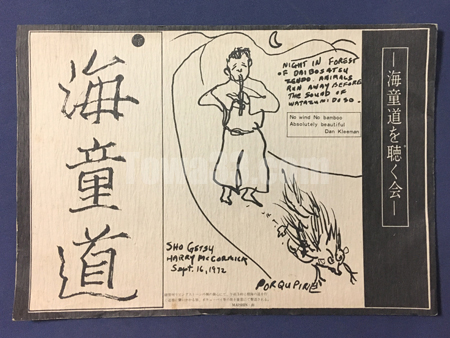 海童道
NIGHT IN FOREST
OF DAIBOSATSU
ZENDO. ANIMALS
RUN AWAY BEFORE
THE SOUND OF
WATAZUMI DO SO.
No wind No bamboo
Absolutely beautiful
Dan Kleeman
SHO GETSU
HARRY McCORMICK
Sept. 16, 1972
PORQUPINE
—海童道を聴く会—